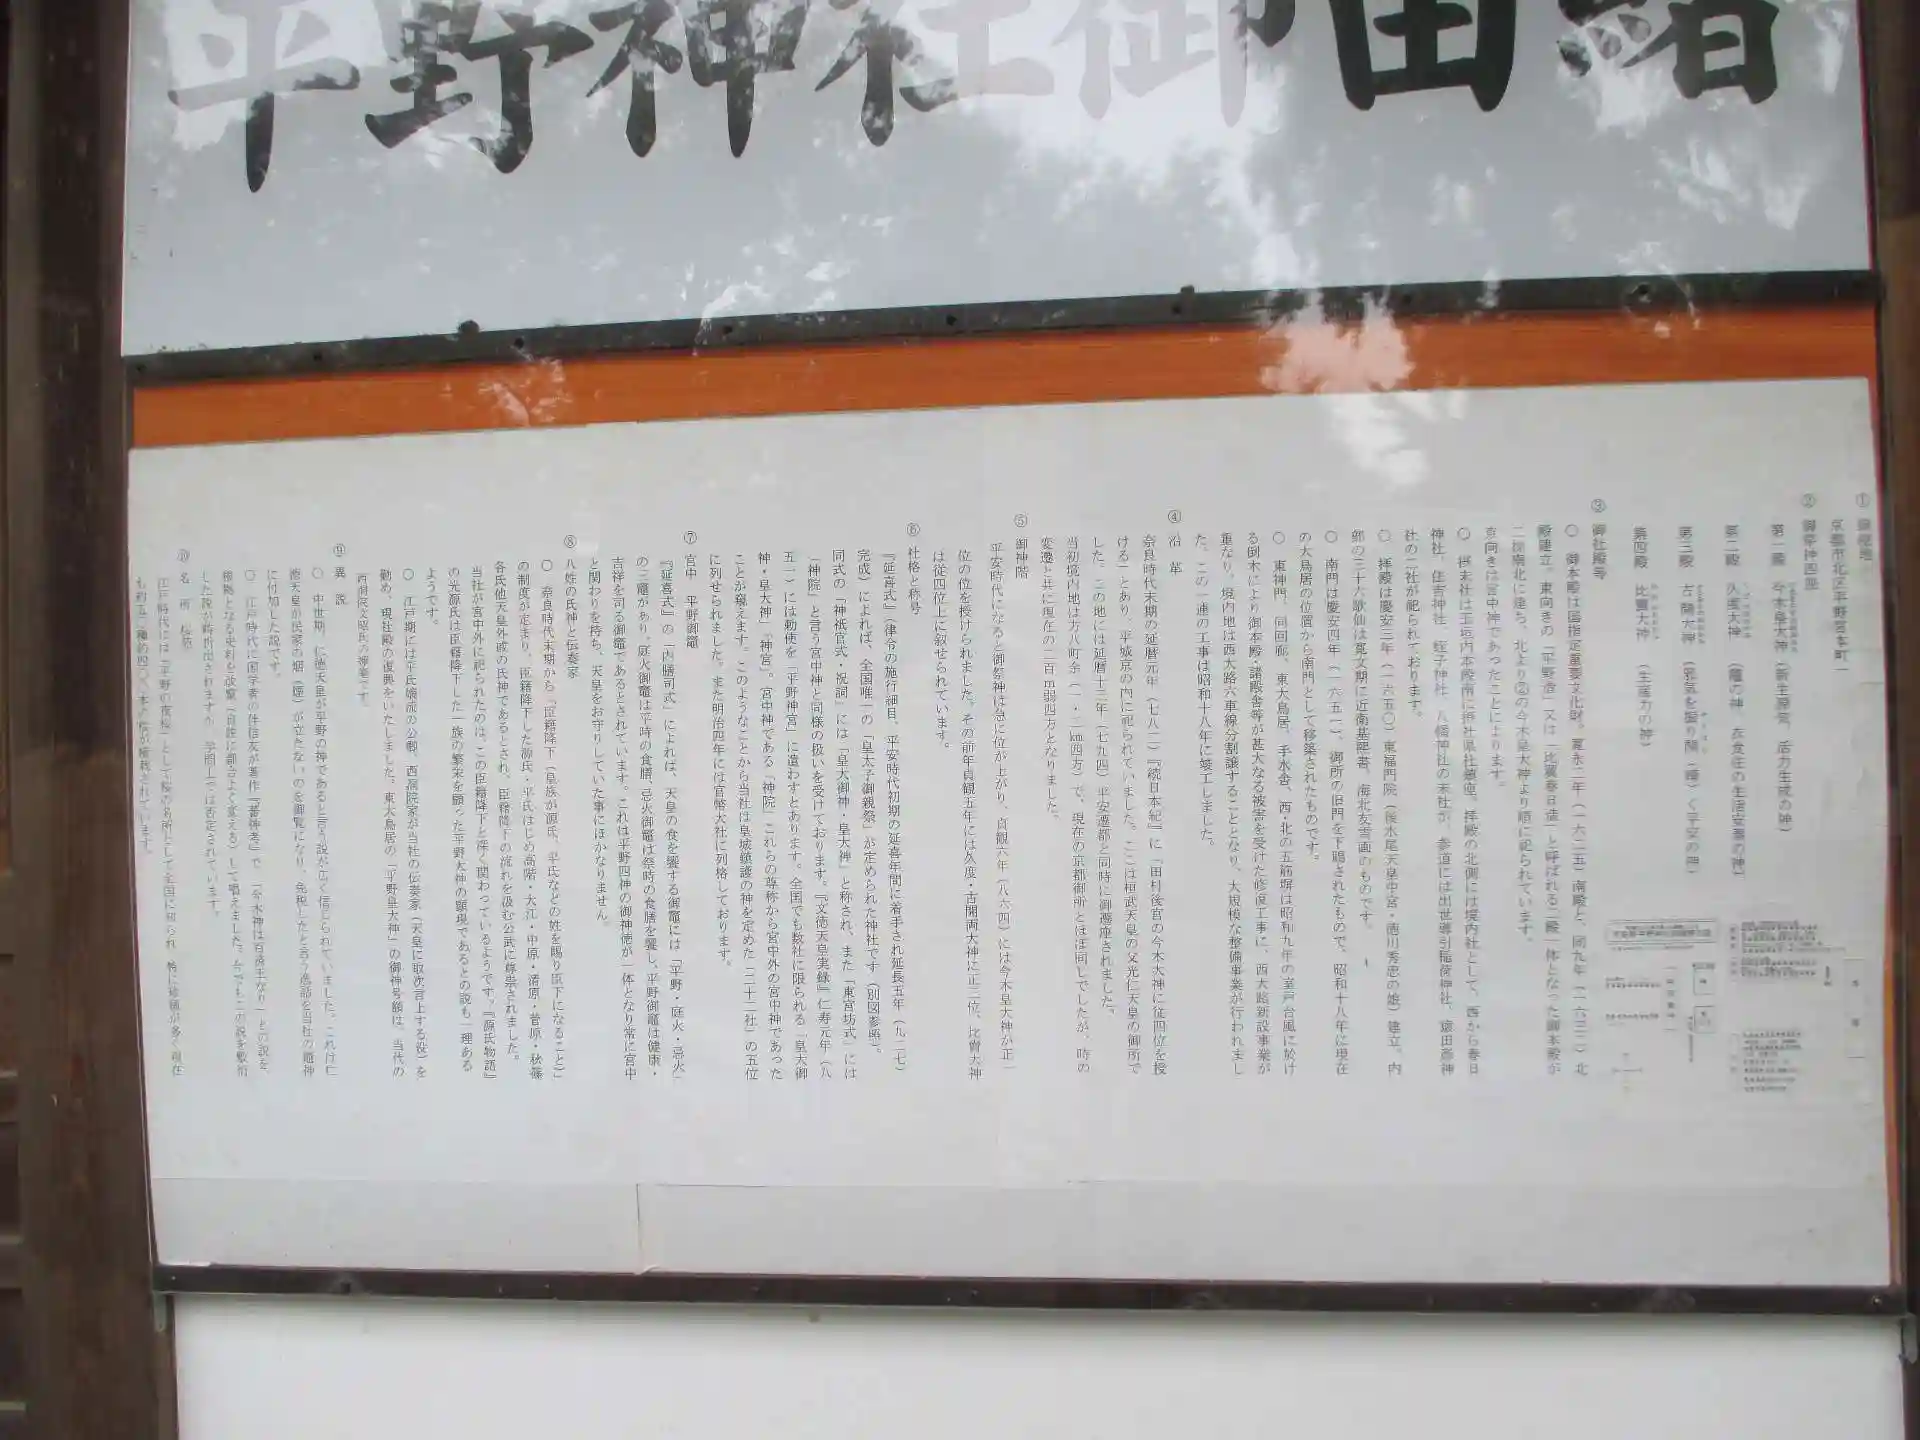 平野神社御由緒
① 鎮座地
京都市北区平野宮本町一
② 御祭神四座
第一殿 今木皇大神(新生源気、活力生成の神)
第二殿 久度大神 (竈の神、衣食住の生活安泰の神)
第三殿 古開大神 (邪気を振り開(晴)く平安の神)
第四殿 比賣大神 (生産力の神)
③ 御社殿等
〇 御本殿は国指定重要文化財。寛永二年(一六二五)南殿と、同九年(一六三二)北
殿建立。東向きの「平野造」又は「比翼春日造」と呼ばれる二殿一体となった御本殿が
二棟南北に建ち、北より②の今木皇大神より順に祀られています。
京向きは宮中神であったことによります。
〇 摂末社は玉垣内本殿南に摂社県社鎮座。拝殿の北側には境内社として、西から春日
神社、住吉神社、蛭子神社、八幡神社の末社が、参道には出世導引稲荷神社、猿田彦神
社の二社が祀られております。
〇 拝殿は慶安三年(一六五〇)東福門院(後水尾天皇中宮・徳川秀忠の娘)建立。内
部の三十六歌仙は寛文期に近衛基熈書、海北友雪画のものです。
〇 南門は慶安四年(一六五一)、御所の旧門を下賜されたもので、昭和十八年に現在
の大鳥居の位置から南門として移築されたものです。
〇 東神門、同回廊、東大鳥居、手水舎、西・北の五筋塀は昭和九年の室戸台風に於け
る倒木により御本殿・諸殿舎等が甚大なる被害を受けた修復工事に、西大路新設事業が
重なり、境内地は西大路六車線分割譲することとなり、大規模な整備事業が行われまし
た。この一連の工事は昭和十八年に竣工しました。
④ 沿 革
奈良時代末期の延暦元年(七八二)『続日本紀』に「田村後宮の今木大神に従四位を授
ける」とあり、平城京の内に祀られていました。ここは桓武天皇の父光仁天皇の御所で
した。この地には延暦十三年(七九四)平安遷都と同時に御遷座されました。
当初境内地は方八町余(一・二㎞四方)で、現在の京都御所とほぼ同じでしたが、時の
変遷と共に現在の二百m弱四方となりました。
⑤ 御神階
平安時代になると御祭神は急に位が上がり、貞観六年(八六四)には今木皇大神が正一
位の位を授けられました。その前年貞観五年には久度・古開両大神に正三位、比賣大神
は従四位上に叙せられています。
⑥ 社格と称号
『延喜式』(律令の施行細目、平安時代初期の延喜年間に着手され延長五年(九二七)
完成)によれば、全国唯一の「皇太子御親祭」が定められた神社です(別図参照)。
同式の「神祇官式・祝詞」には「皇大御神・皇大神」と称され、また「東宮坊式」には
「神院」と言う宮中神と同様の扱いを受けております。『文徳天皇実録』仁寿元年(八
五一)には勅使を「平野神宮」に遣わすとあります。全国でも数社に限られる「皇大御
神・皇大神」「神宮」。宮中神である「神院」これらの尊称から宮中外の宮中神であった
ことが窺えます。このようなことから当社は皇城鎮護の神を定めた二十二社」の五位
に列せられました。また明治四年には官幣大社に列格しております。
⑦ 宮中 平野御竈
『延喜式』の「内膳司式」によれば、天皇の食を饗する御竈には「平野・庭火・忌火」
の三竈があり。庭火御竈は平時の食膳、忌火御竈は祭時の食膳を饗し、平野御竈は健康・
吉祥を司る御竈であるとされています。これは平野四神の御神徳が一体となり常に宮中
と関わりを持ち、天皇をお守りしていた事にほかなりません。
⑧ 八姓の氏神と伝奏家
〇 奈良時代末期から「臣籍降下(皇族が源氏、平氏などの姓を賜り臣下になること)」
の制度が定まり。臣籍降下した源氏・平氏はじめ高階・大江・中原・清原・菅原・秋篠
各氏他天皇外戚の氏神であるとされ、臣籍降下の流れを汲む公武に尊崇されました。
当社が宮中外に祀られたのは、この臣籍降下と深く関わっているようです。『源氏物語』
の光源氏は臣籍降下した一族の繁栄を願った平野大神の顕現であるとの説も一理ある
ようです。
〇 江戸期には平氏嫡流の公卿、西洞院家が当社の伝奏家(天皇に取次言上する役)を
勤め、現社殿の復興をいたしました。東大鳥居の「平野皇大神」の御神号額は、当代の
西洞院文昭氏の揮毫です。
⑨ 異 説
〇 中世期、仁徳天皇が平野の神であると言う説が広く信じられていました。これは仁
徳天皇が民家の烟(煙)が立たないのを御覧になり、免税したと言う逸話を当社の竈神
に付加した説です。
〇 江戸時代に国学者の伴信友が著作『蕃神考』で、「今木神は百済王なり」との説を、
根拠となる史料を改竄(自説に都合よく変える)して唱えました。今でもこの説を敷衍
した説が時折出されますが、学問上では否定されています。
⑩ 名 所 桜苑
江戸時代には「平野の夜桜」として桜の名所として全国に知られ、特に珍種が多く現在